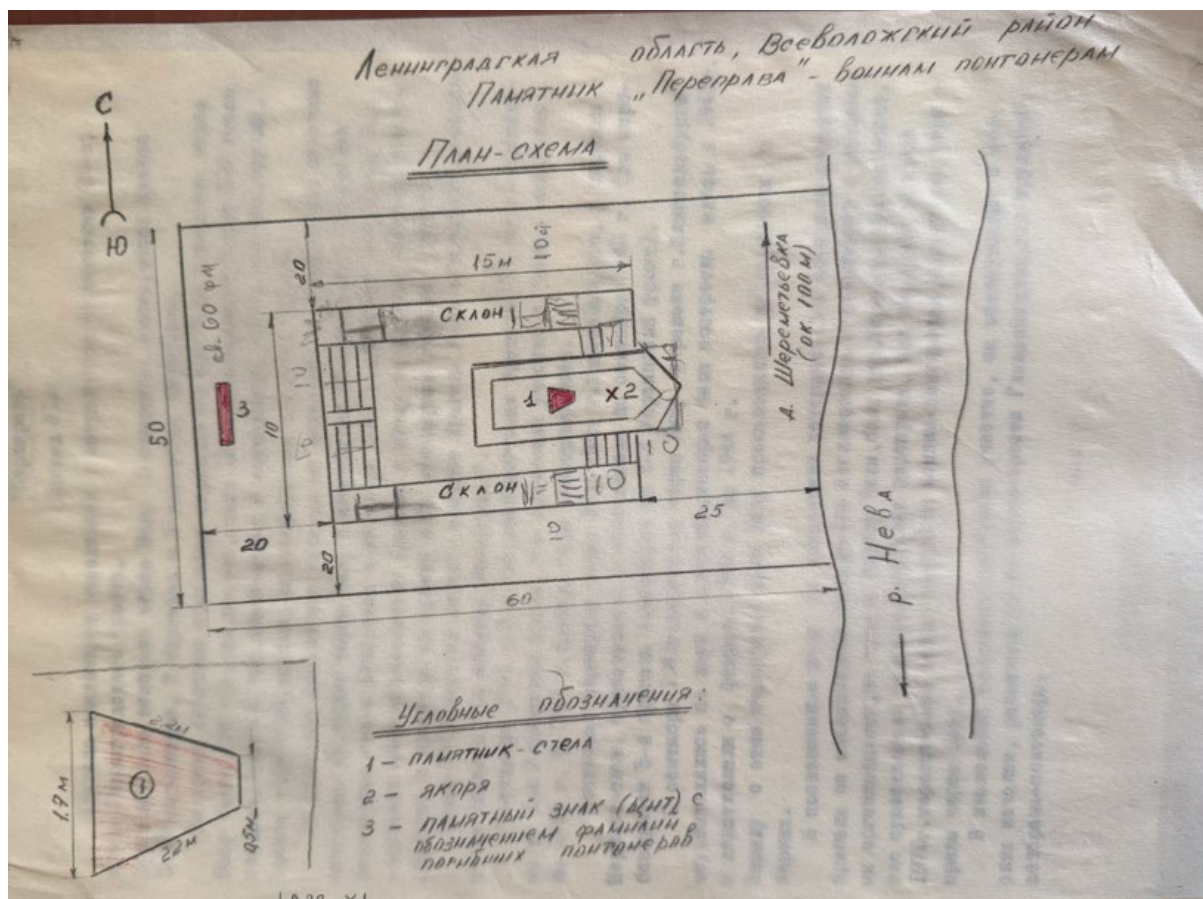 Ленинградская область, Всеволожский район
Памятник „Переправа" - воинам понтонерам
План-схема
С
Ю
св. 60 фм
3
50
20
15м
10й
Склон
10
10
1
х2
10
Склон
10
10
20
20
25
60
д. Шереметьевка
(ок. 100 м)
р. Нева
1,9 м
2,2м
1
22м
0,5м
Условные обозначения:
1 - памятник-стела
2 - якоря
3 - памятный знак (щит) с
обозначением фамилии
погибших понтонеров